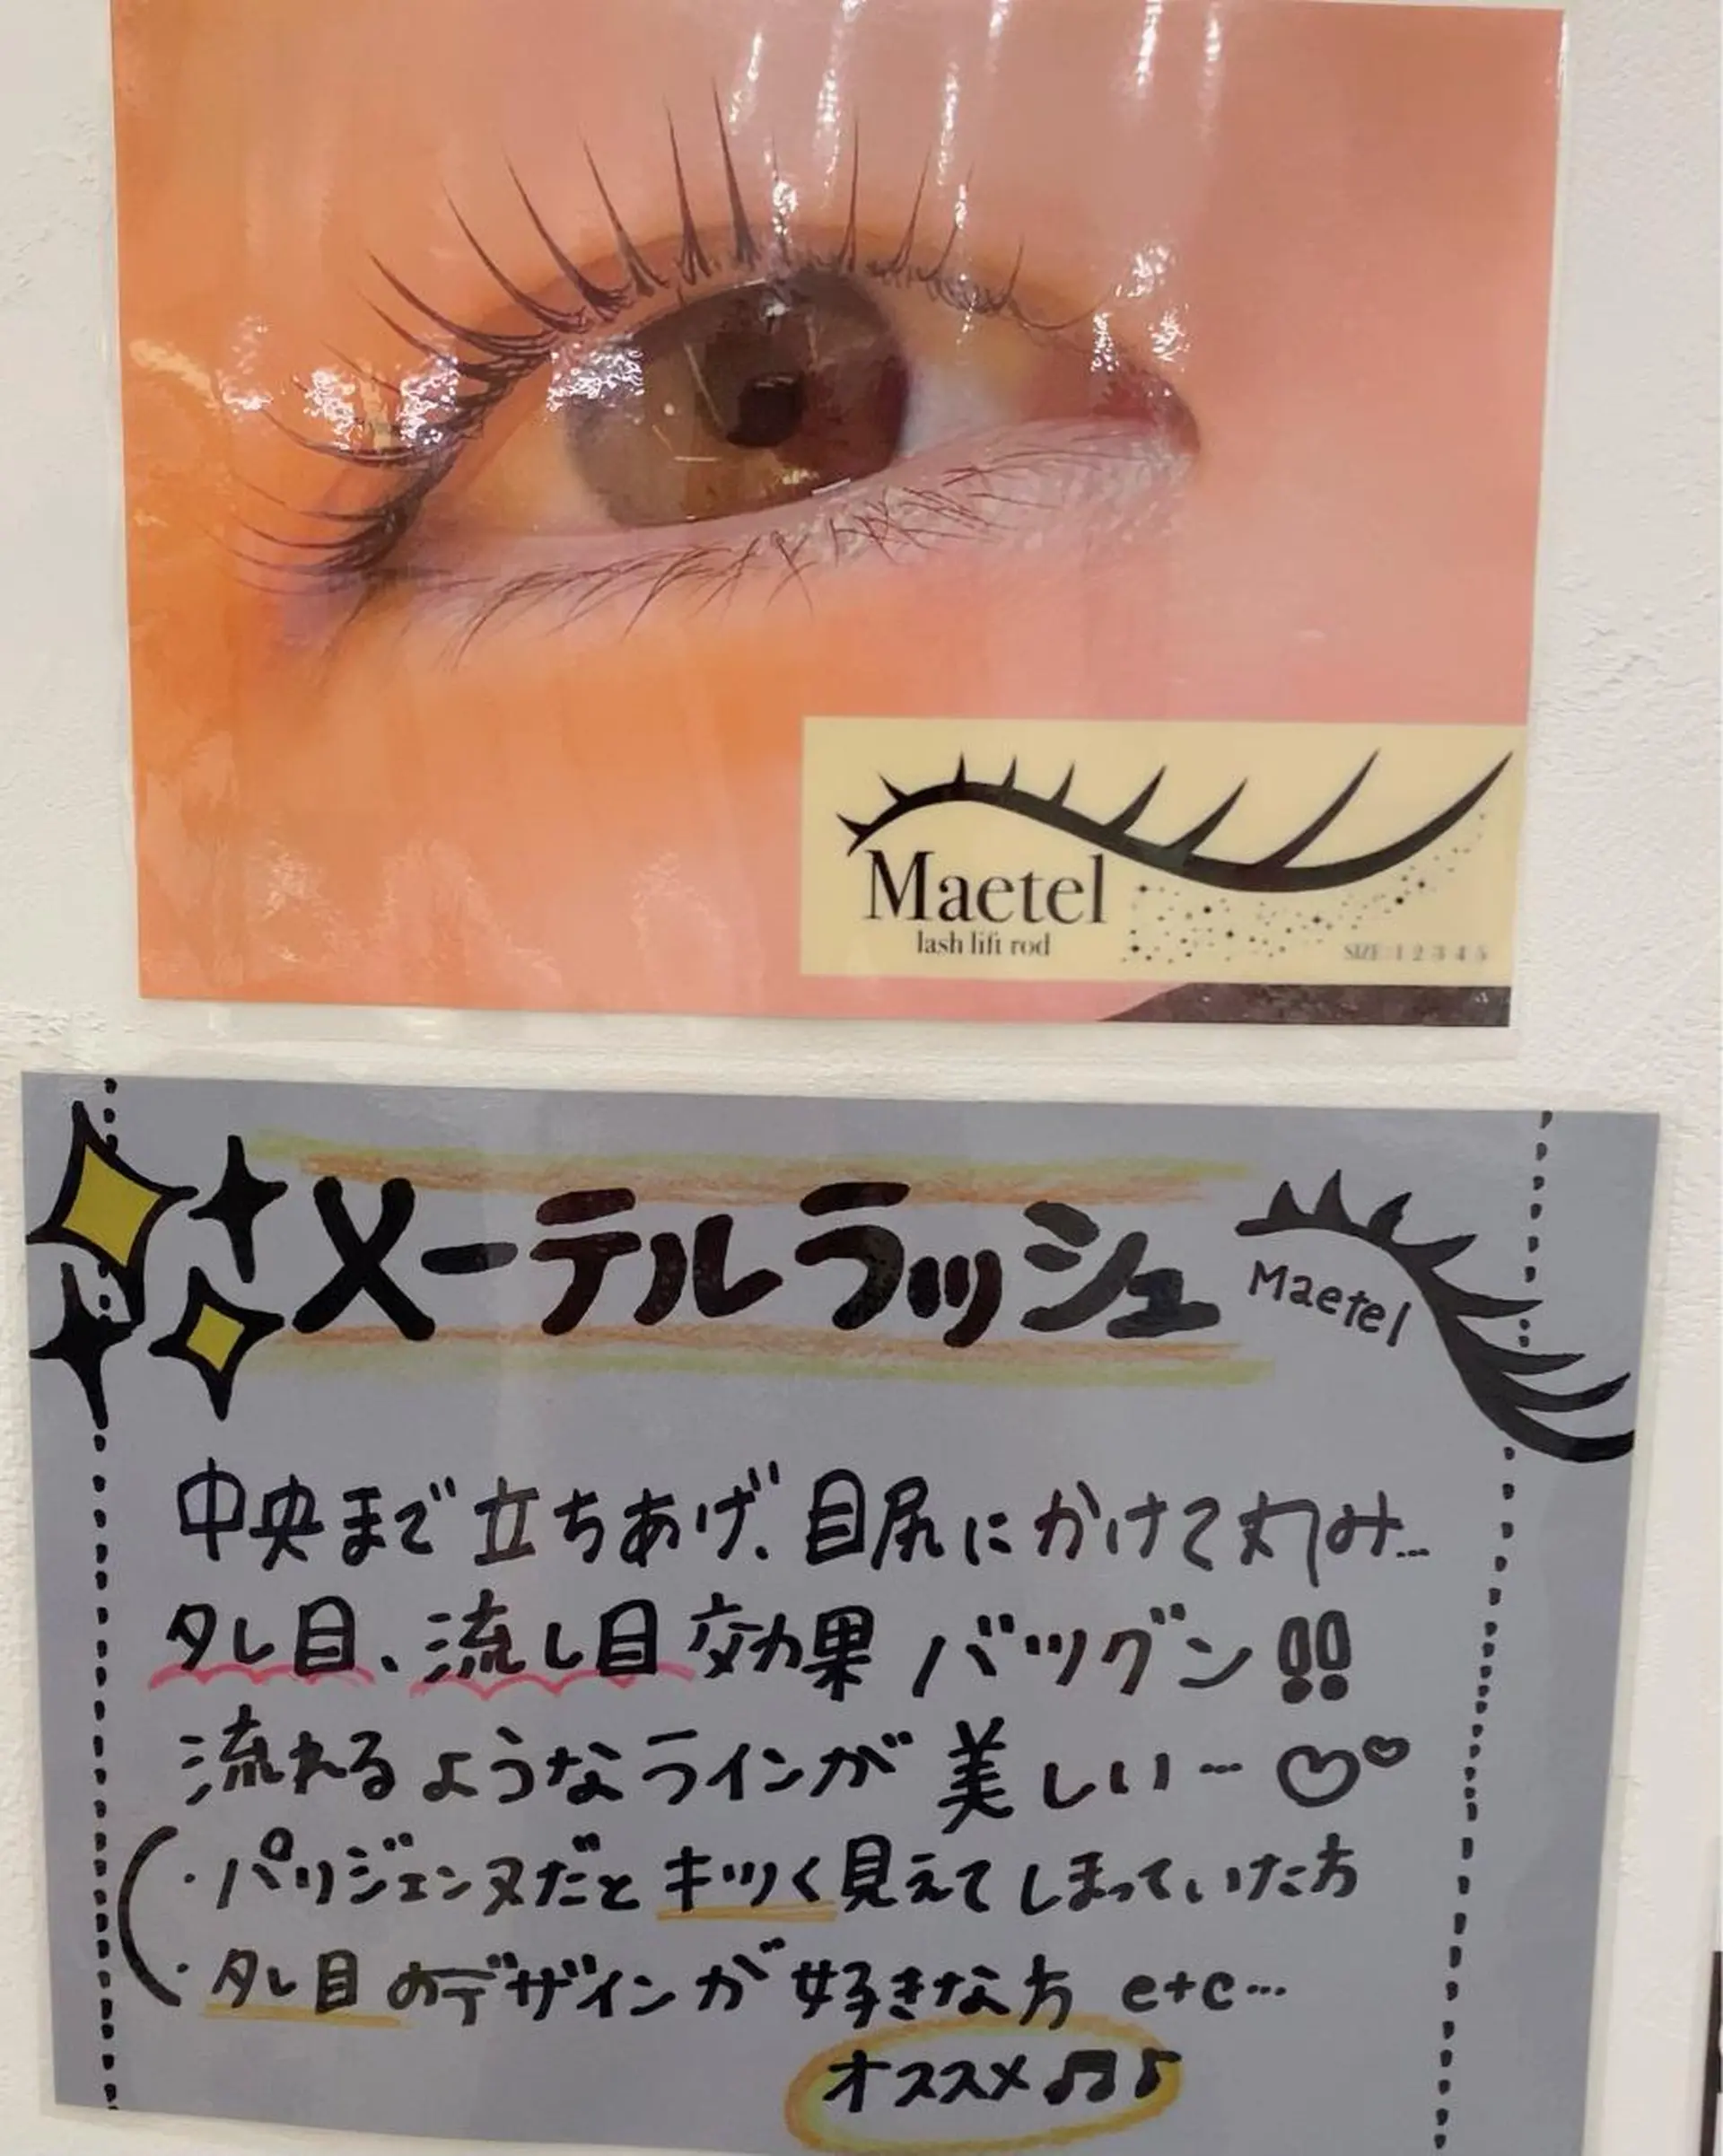 Maetel
lash lift rod
SIZE 1 2 3 4 5
メーテルラッシュ
Maetel
中央まで立ちあげ、目尻にかけて丸み…
タレ目、流し目効果バツグン!!
流れるようなラインが美しい…♡♡
・パリジェンヌだとキツく見えてしまっていた方
・タレ目のデザインが好きな方 etc…
オススメ♫♪